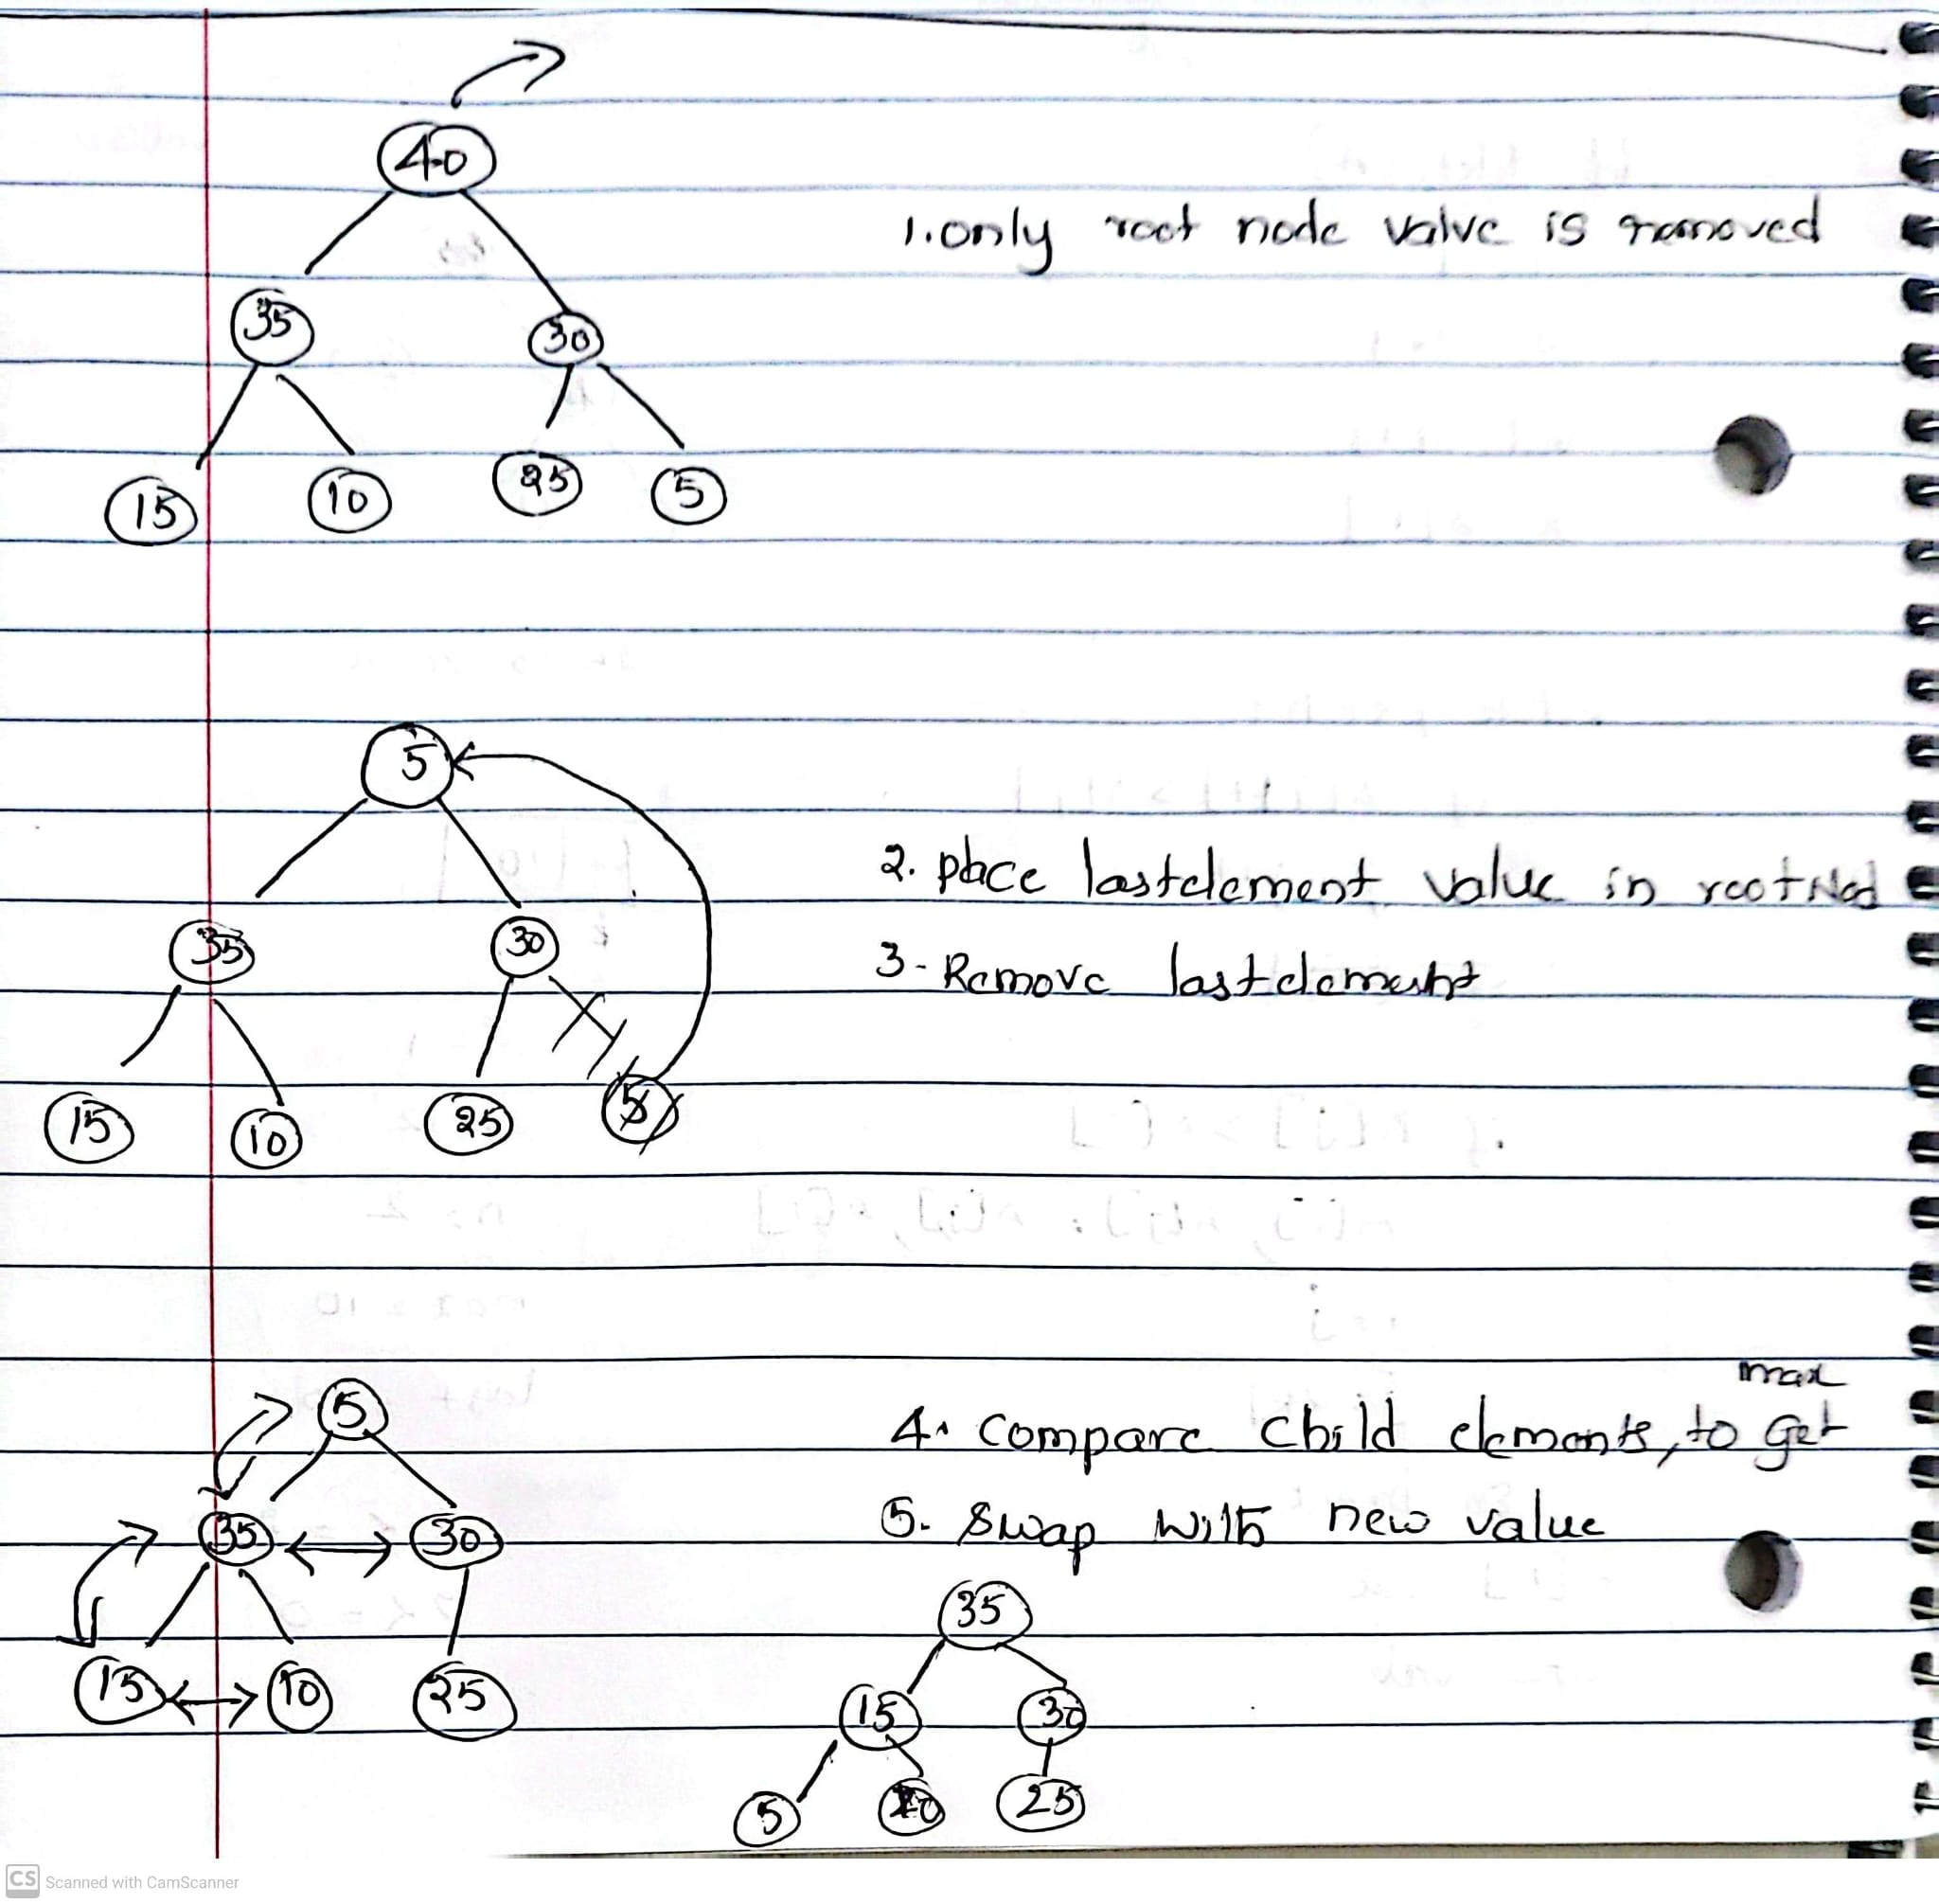 40
1. only root node value is removed
35 30
15 10 25 5
5
2. place lastelement value in rootNod
35 30
3- Remove lastelement
15 10 25 5
max
5
4. Compare Child elements, to get
35 30
5. Swap with new value
35
15 10 25
15 30
5 10 25
CS Scanned with CamScanner